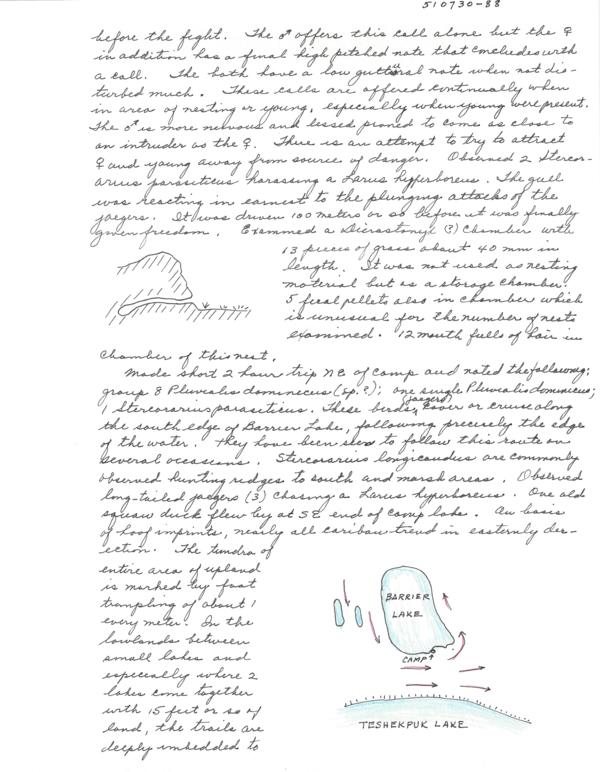 510730-88
before the fight. The ♂ offers this call alone but the ♀
in addition has a final high pitched note that concludes with
a call. The both have a low guttural note when not dis-
turbed much. These calls are offered continually when
in area of nesting or young, especially when young were present.
The ♂ is more nervous and lessed proned to come as close to
an intruder as the ♀. There is an attempt to try to attract
♀ and young away from source of danger. Observed 2 Stercor-
arius parasiticus harassing a Larus hyperboreus. The gull
was reacting in earnest to the plunging attacks of the
jaegers. It was driven 100 meters or so before it was finally
given freedom. Examined a Dicrostonyx (?) chamber with
13 pieces of grass about 40 mm in
length. It was not used as nesting
material but as a storage chamber.
5 fecal pellets also in chamber which
is unusual for the number of nests
examined. 12 mouth fulls of hair in
chamber of this nest.
Made short 2 hour trip NE of camp and noted the following:
group 8 Pluvialis dominicus (sp.?); one single Pluvialis dominicus;
1 Stercorarius parasiticus. These birds (jaegers) hover or cruise along
the south edge of Barrier Lake, following precisely the edge
of the water. They have been seen to follow this route on
several occasions. Stercorarius longicaudus are commonly
observed hunting ridges to south and marsh areas. Observed
long-tailed jaegers (3) chasing a Larus hyperboreus. One old
squaw duck flew by at SE end of camp lake. On basis
of hoof imprints, nearly all caribou trend in easternly dir-
ection. The tundra of
entire area of upland
is marked by foot
trampling of about 1
every meter. In the
lowlands between
small lakes and
especially where 2
lakes come together
with 15 feet or so of
land, the trails are
deeply imbedded to
BARRIER
LAKE
CAMP
TESHEKPUK LAKE